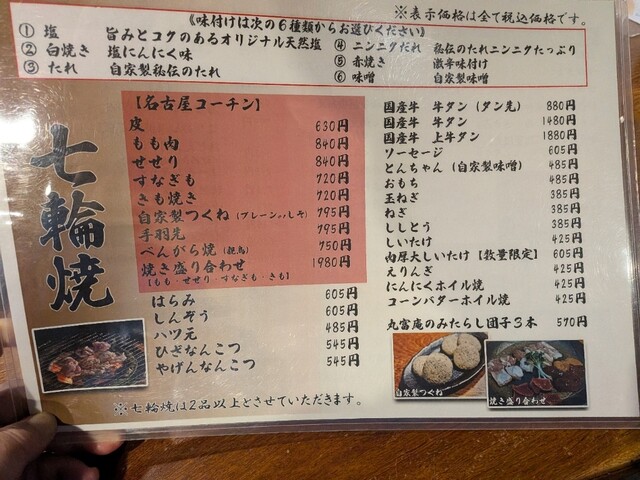 《味付けは次の6種類からお選びください》
※表示価格は全て税込価格です。
① 塩 旨みとコクのあるオリジナル天然塩
② 白焼き 塩にんにく味
③ たれ 自家製秘伝のたれ
④ ニンニクだれ 秘伝のたれニンニクたっぷり
⑤ 赤焼き 激辛味付け
⑥ 味噌 自家製味噌
七輪焼
【名古屋コーチン】
皮 630円
もも肉 840円
せせり 840円
すなぎも 720円
きも焼き 720円
自家製つくね(プレーンorしそ) 795円
手羽先 795円
べんがら焼(親鳥) 750円
焼き盛り合わせ 1980円
【もも・せせり・すなぎも・きも】
はらみ 605円
しんぞう 605円
ハツ元 485円
ひざなんこつ 545円
やげんなんこつ 545円
国産牛 牛タン(タン先) 880円
国産牛 牛タン 1480円
国産牛 上牛タン 1880円
ソーセージ 605円
とんちゃん(自家製味噌) 485円
おもち 485円
玉ねぎ 385円
ねぎ 385円
ししとう 385円
しいたけ 425円
肉厚大しいたけ【数量限定】 605円
えりんぎ 425円
にんにくホイル焼 425円
コーンバターホイル焼 425円
丸富庵のみたらし団子3本 570円
自家製つくね
焼き盛り合わせ
※七輪焼は2品以上とさせていただきます。